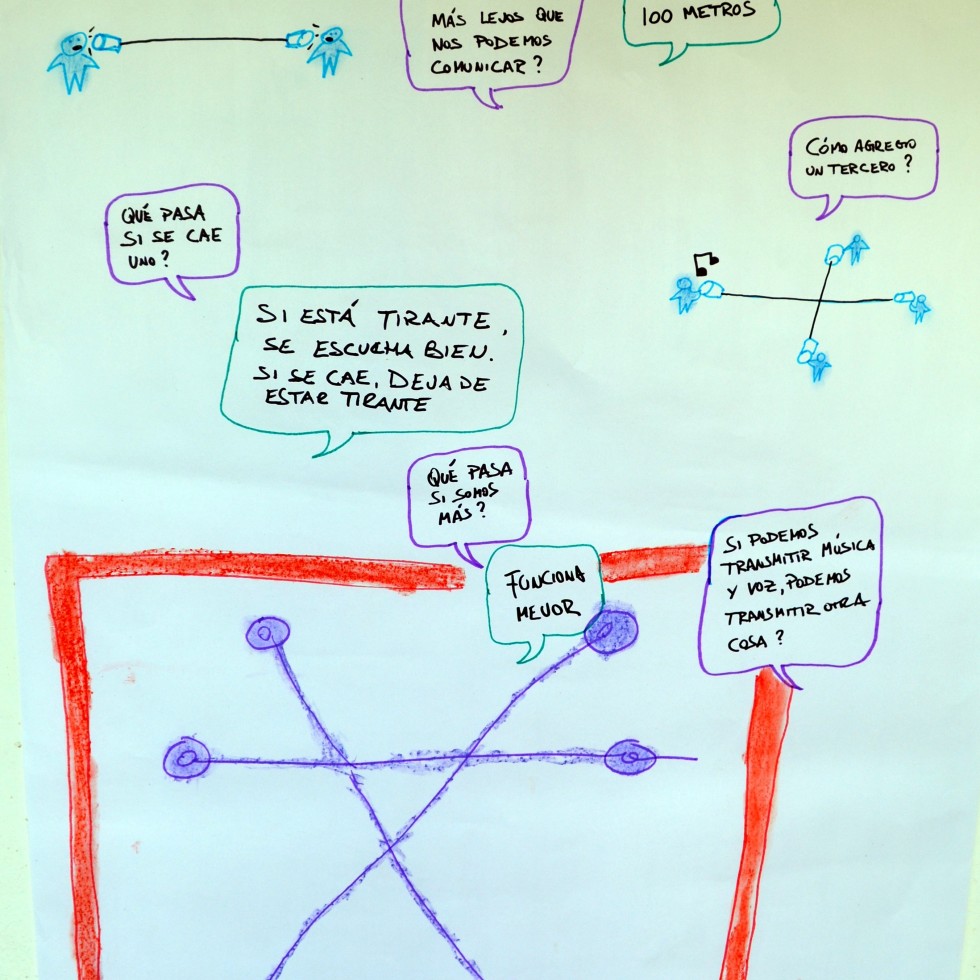 MÁS LEJOS QUE
NOS PODEMOS
COMUNICAR?
100 METROS
CÓMO AGREGO
UN TERCERO?
QUÉ PASA
SI SE CAE
UNO?
SI ESTÁ TIRANTE,
SE ESCUCHA BIEN.
SI SE CAE, DEJA DE
ESTAR TIRANTE
QUÉ PASA
SI SOMOS
MÁS?
FUNCIONA
MEJOR
SI PODEMOS
TRANSMITIR MÚSICA
Y VOZ, PODEMOS
TRANSMITIR OTRA
COSA?